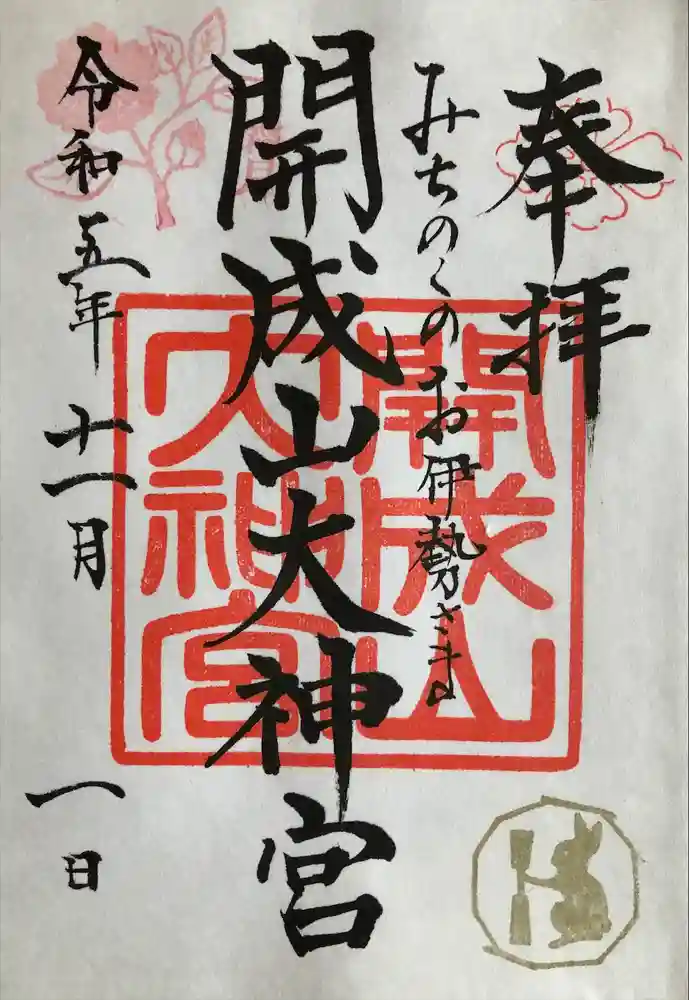 奉拝
みちのくのお伊勢さま
開成山大神宮
令和五年十一月一日
開成山
大神宮